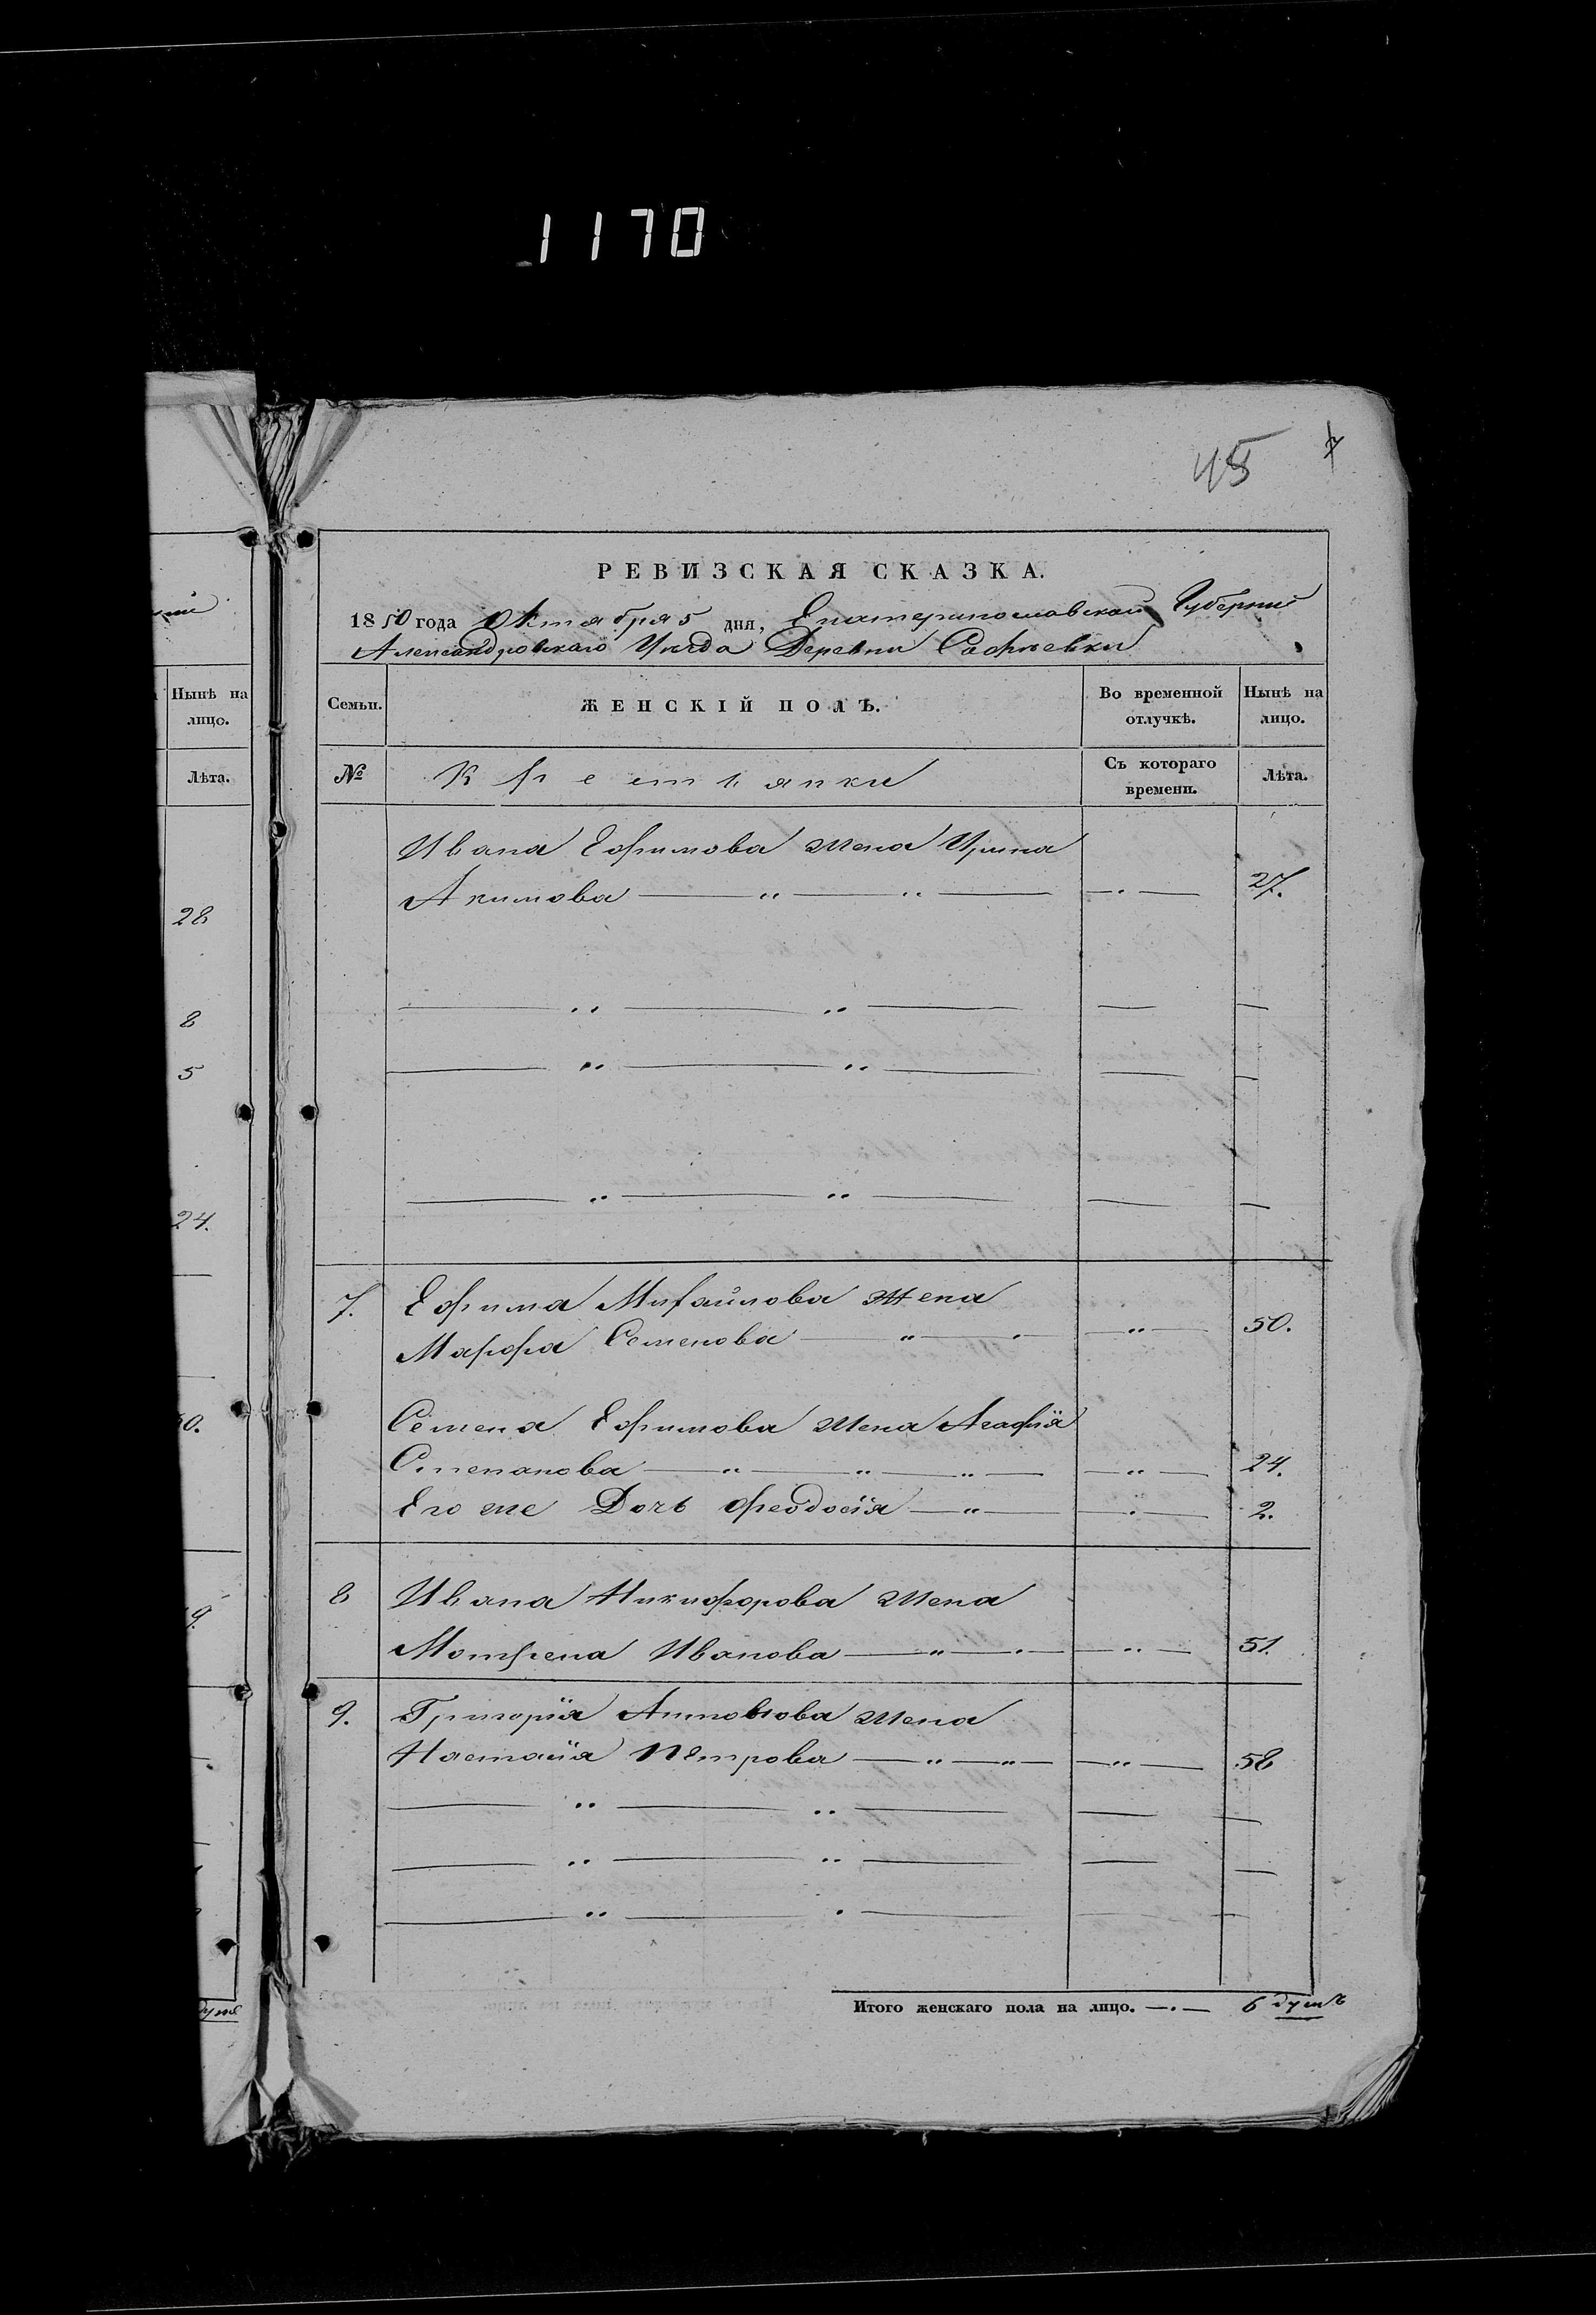 1170
45
7
РЕВИЗСКАЯ СКАЗКА.
1850 года Октября 5 дня, Екатеринославской Губернии
Александровскаго Уѣзда Деревни Софіевки
Нынѣ на лицо.
Лѣта.
28
8
5
24.
0.
9.
душъ
Семьи.
ЖЕНСКІЙ ПОЛЪ.
Во временной отлучкѣ.
Нынѣ на лицо.
№
Крестьянки
Съ котораго времени.
Лѣта.
Ивана Ефимова жена Ирина
Акимова — „ — „ — — . — 27.
— „ — „ — — —
— „ — „ — — —
— „ — „ — — —
7. Ефима Михайлова жена
Марфа Семенова — „ — . — „ — 50.
Семена Ефимова жена Агафія
Степанова — „ — „ — „ — — „ — 24.
Его же Дочь Феодосія — „ — — . — 2.
8 Ивана Никифорова жена
Мотрена Иванова — „ — . — — „ — 51.
9. Григорія Антонова жена
Настасія Петрова — „ — „ — — „ — 58
— „ — „ — — —
— „ — „ — — —
— „ — . — — —
Итого женскаго пола на лицо. — . — 6 душъ